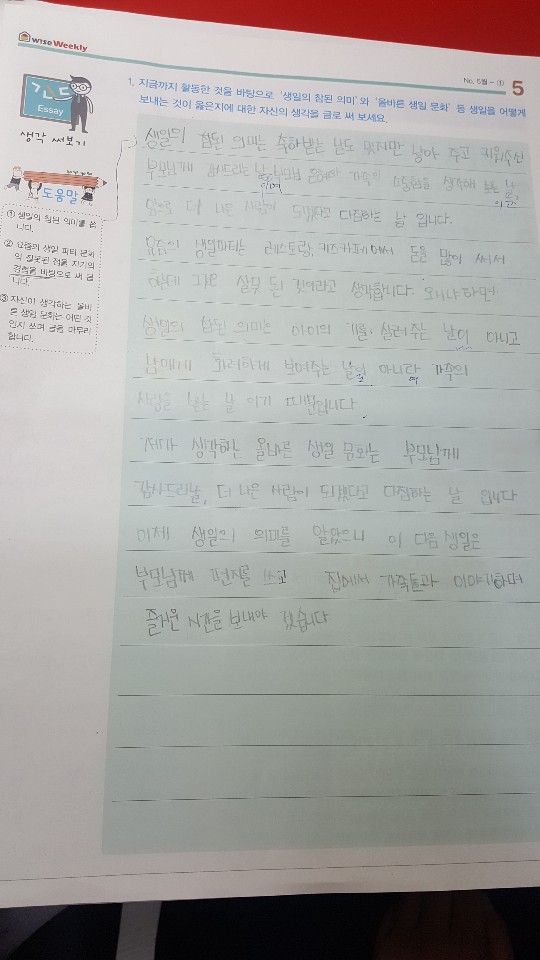 wiseWeekly
No. 5월 - ①
5
Essay
생각 써보기
도움말
① 생일의 참된 의미를 씁
니다.
② 요즘의 생일 파티 문화
의 잘못된 점을 자기의
경험을 바탕으로 써 봅
니다.
③ 자신이 생각하는 올바
른 생일 문화는 어떤 것
인지 쓰며 글을 마무리
합니다.
1. 지금까지 활동한 것을 바탕으로 '생일의 참된 의미'와 '올바른 생일 문화' 등 생일을 어떻게
보내는 것이 옳은지에 대한 자신의 생각을 글로 써 보세요.
생일의 참된 의미는 축하받는 날도 맞지만 낳아 주고 키워주신
부모님께 감사드리는 날 가족의 소중함을 생각해 보는 날,
앞으로 더 나은 사람이 되겠다고 다짐하는 날 입니다.
요즘의 생일파티는 레스토랑, 키즈카페에서 돈을 많이 써서
생각합니다. 왜냐하면
생일의 참된 의미는 아이의 기를 살려주는 날이 아니고
남에게 화려하게 보여주는 날이 아니라 가족의
사랑을 날 이기 때문입니다.
제가 생각하는 올바른 생일 문화는 부모님께
감사드리날, 더 나은 사람이 되겠다고 다짐하는 날 입니다
이제 생일의 의미를 알았으니 이 다음 생일은
부모님께 편지를 쓰고 집에서 가족들과 이야기하며
즐거운 시간을 보내야 겠습니다